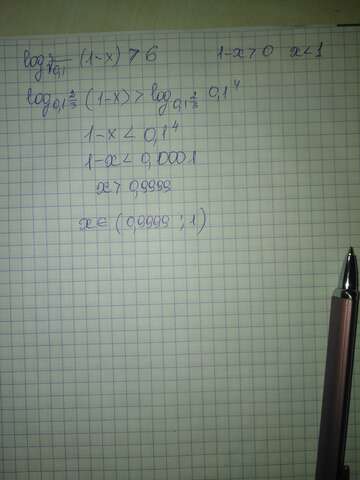 log_{\sqrt[3]{0,1}} (1-x) > 6     1-x>0   x<1
log_{0,1^{\frac{2}{3}}} (1-x) > log_{0,1^{\frac{2}{3}}} 0,1^4
1-x < 0,1^4
1-x < 0,0001
x > 0,9999
x ∈ (0,9999 ; 1)